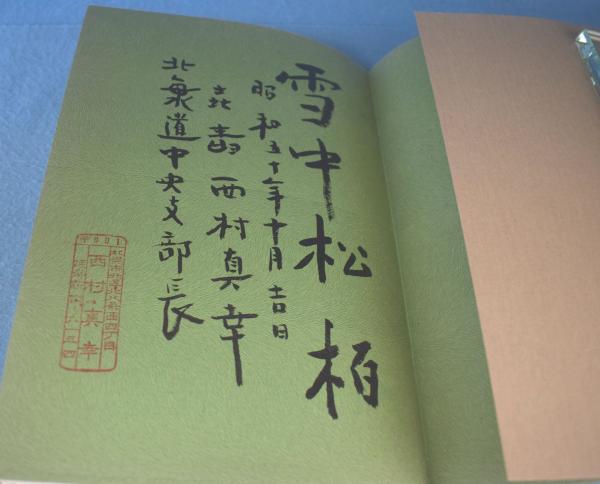 雪中松柏
昭和五十年十月吉日
北壽 西村真幸
北海道中央支部長
西村真幸